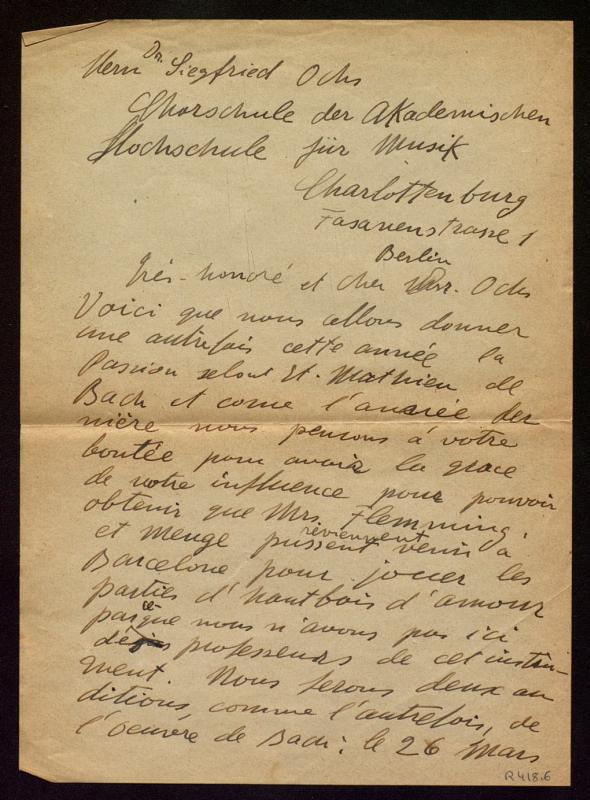 Herrn Dr. Siegfried Ochs
Chorschule der Akademischen
Hochschule für Musik
Charlottenburg
Fasanenstrasse 1
Berlin
Très-honoré et cher Herr. Ochs
Voici que nous allons donner
une autrefois cette année la
Passion selont St. Mathieu de
Bach et come l'année der
nière nous pensons à votre
bontée pour avoir la grace
de votre influence pour pouvoir
obtenir que Mrs. Flemming,
et Menge pussent réviennent venir à
Barcelone pour jouer les
parties d'hautbois d'amour
parceque nous n'avons pas ici
de professeurs de cet instru-
ment. Nous ferons deux au
ditions, comme l'autrefois, de
l'oeuvre de Bach: le 26 Mars
R 418.6